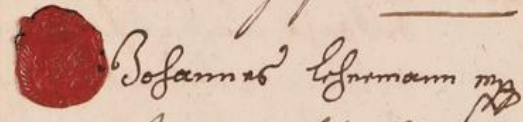 Johannes Lehnemann mp